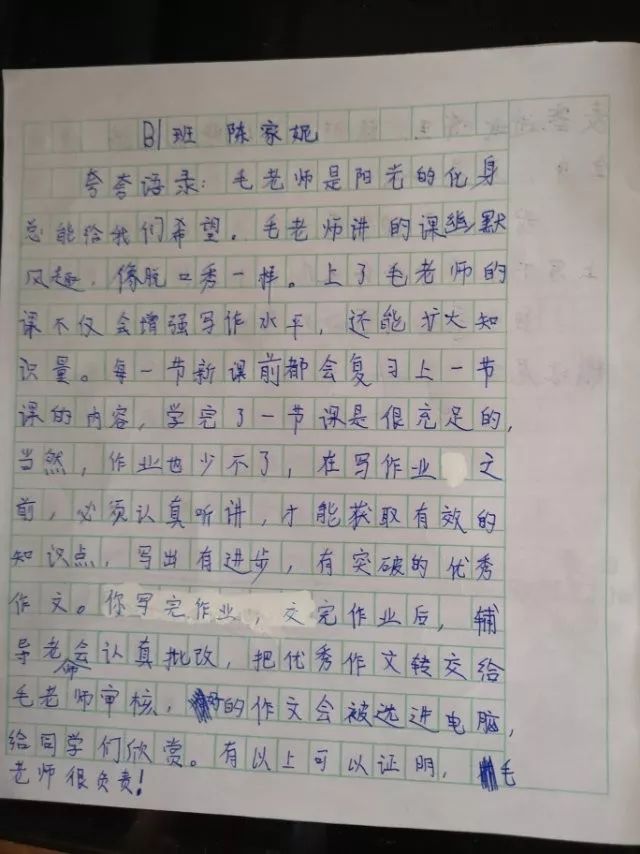 B1班 陈家妮
夸夸语录：毛老师是阳光的化身
总能给我们希望。毛老师讲的课幽默
风趣，像脱口秀一样。上了毛老师的
课不仅会增强写作水平，还能扩大知
识量。每一节新课前都会复习上一节
课的内容，学完了一节课是很充足的，
当然，作业也少不了，在写作业之
前，必须认真听讲，才能获取有效的
知识点，写出有进步，有突破的优秀
作文。你写完作业，交完作业后，辅
导老师会认真批改，把优秀作文转交给
毛老师审核，的作文会被选进电脑，
给同学们欣赏。有以上可以证明，毛
老师很负责！